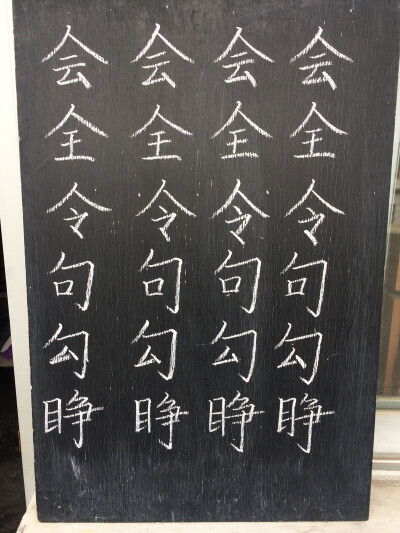 会 会 会 会
全 全 全 全
令 令 令 令
句 句 句 句
勾 勾 勾 勾
睁 睁 睁 睁